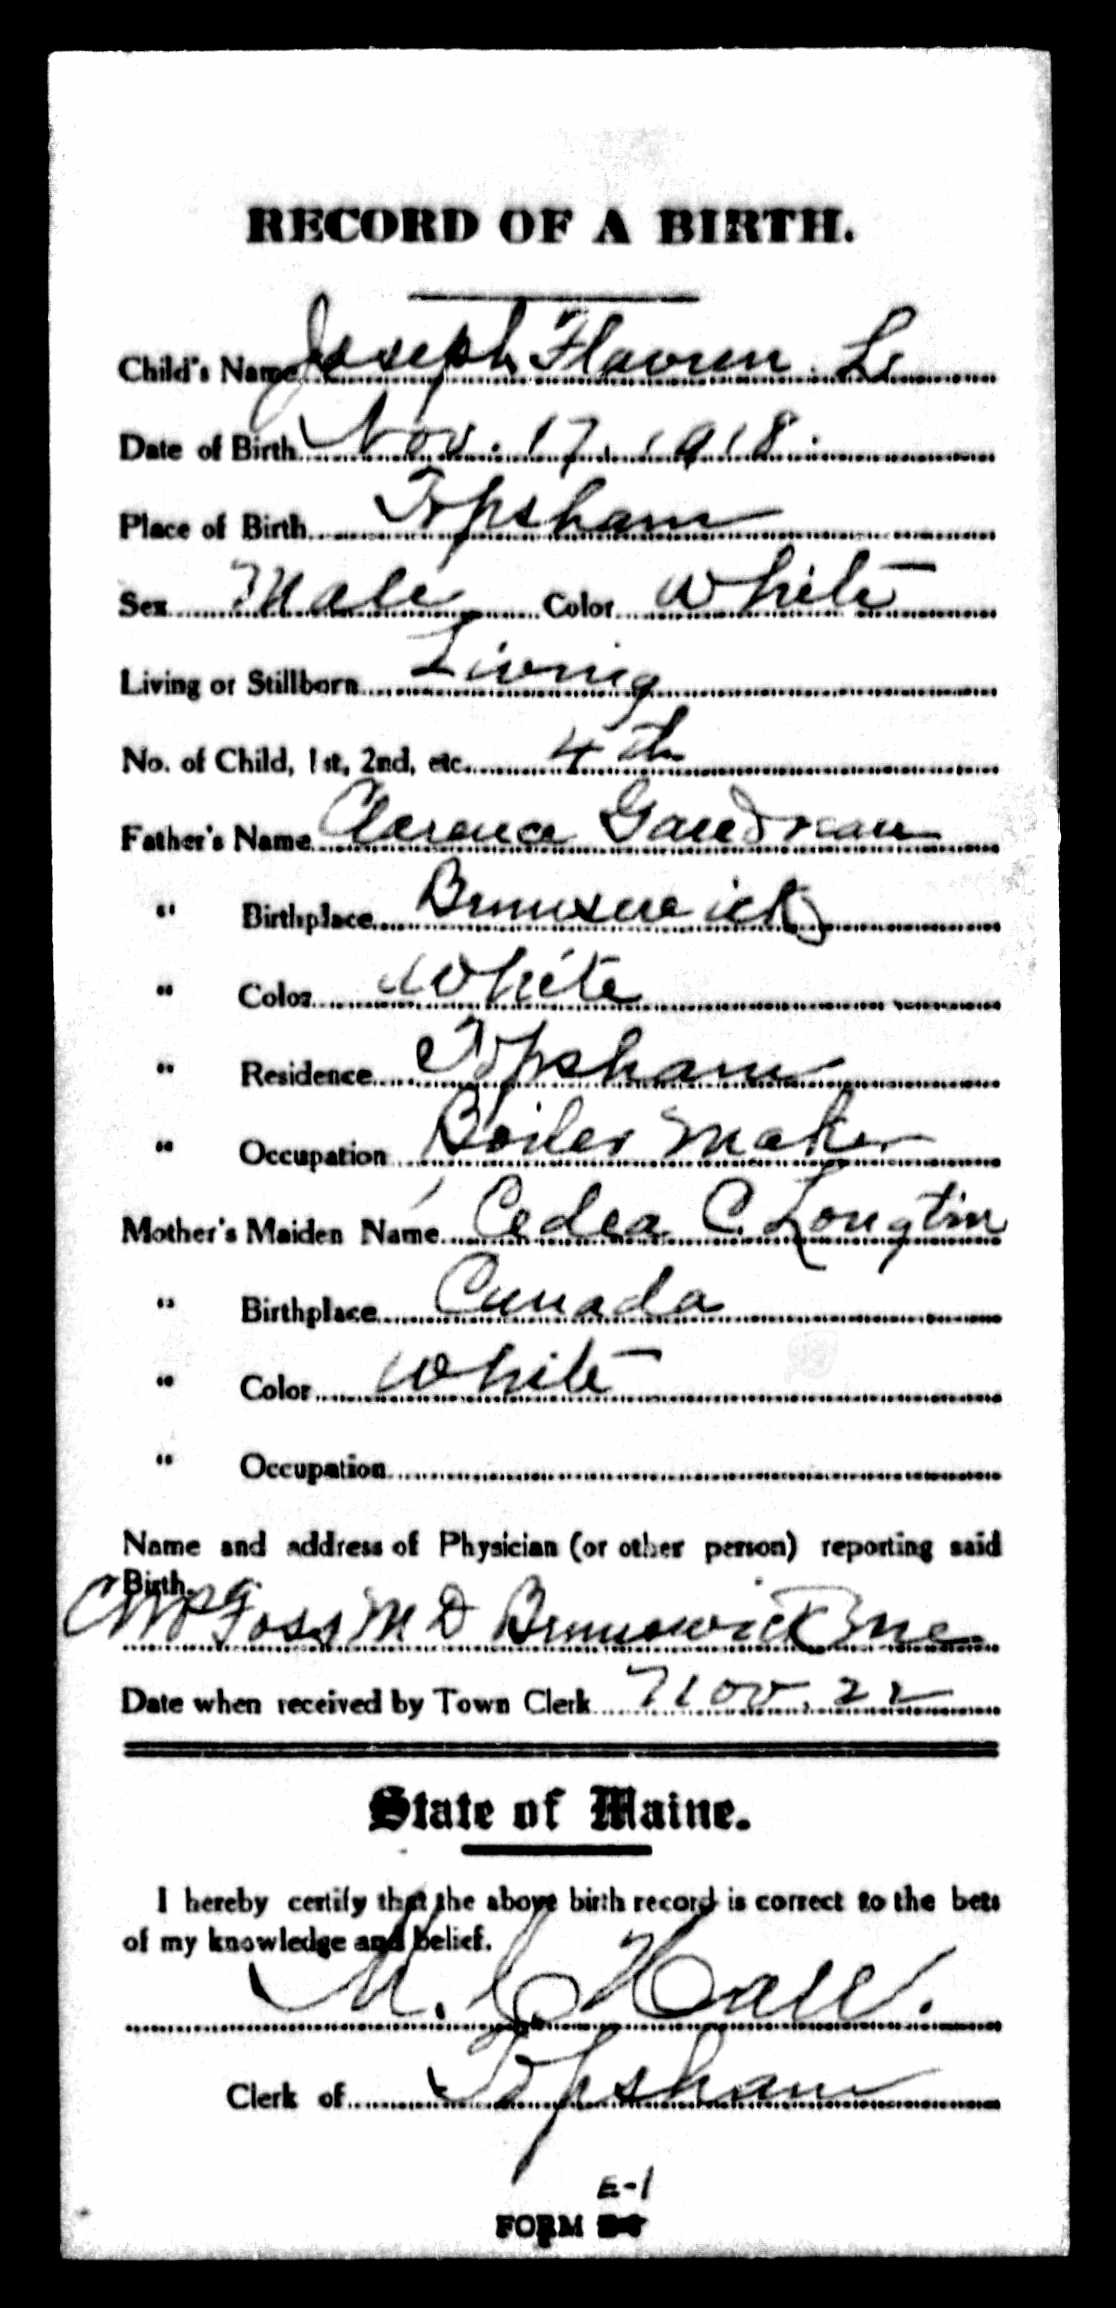 RECORD OF A BIRTH.
Child's Name Joseph Flavien Le
Date of Birth Nov. 17, 1918.
Place of Birth Topsham
Sex Male Color White
Living or Stillborn Living
No. of Child, 1st, 2nd, etc. 4th
Father's Name Clarence Gaudreau
" Birthplace Brunswick
" Color White
" Residence Topsham
" Occupation Boiler Maker
Mother's Maiden Name Cedea C. Longtin
" Birthplace Canada
" Color White
" Occupation
Name and address of Physician (or other person) reporting said
Birth.
Foss M D Brunswick Me.
Date when received by Town Clerk Nov. 22
State of Maine.
I hereby certify that the above birth record is correct to the bets
of my knowledge and belief.
Clerk of Topsham
E-1
FORM